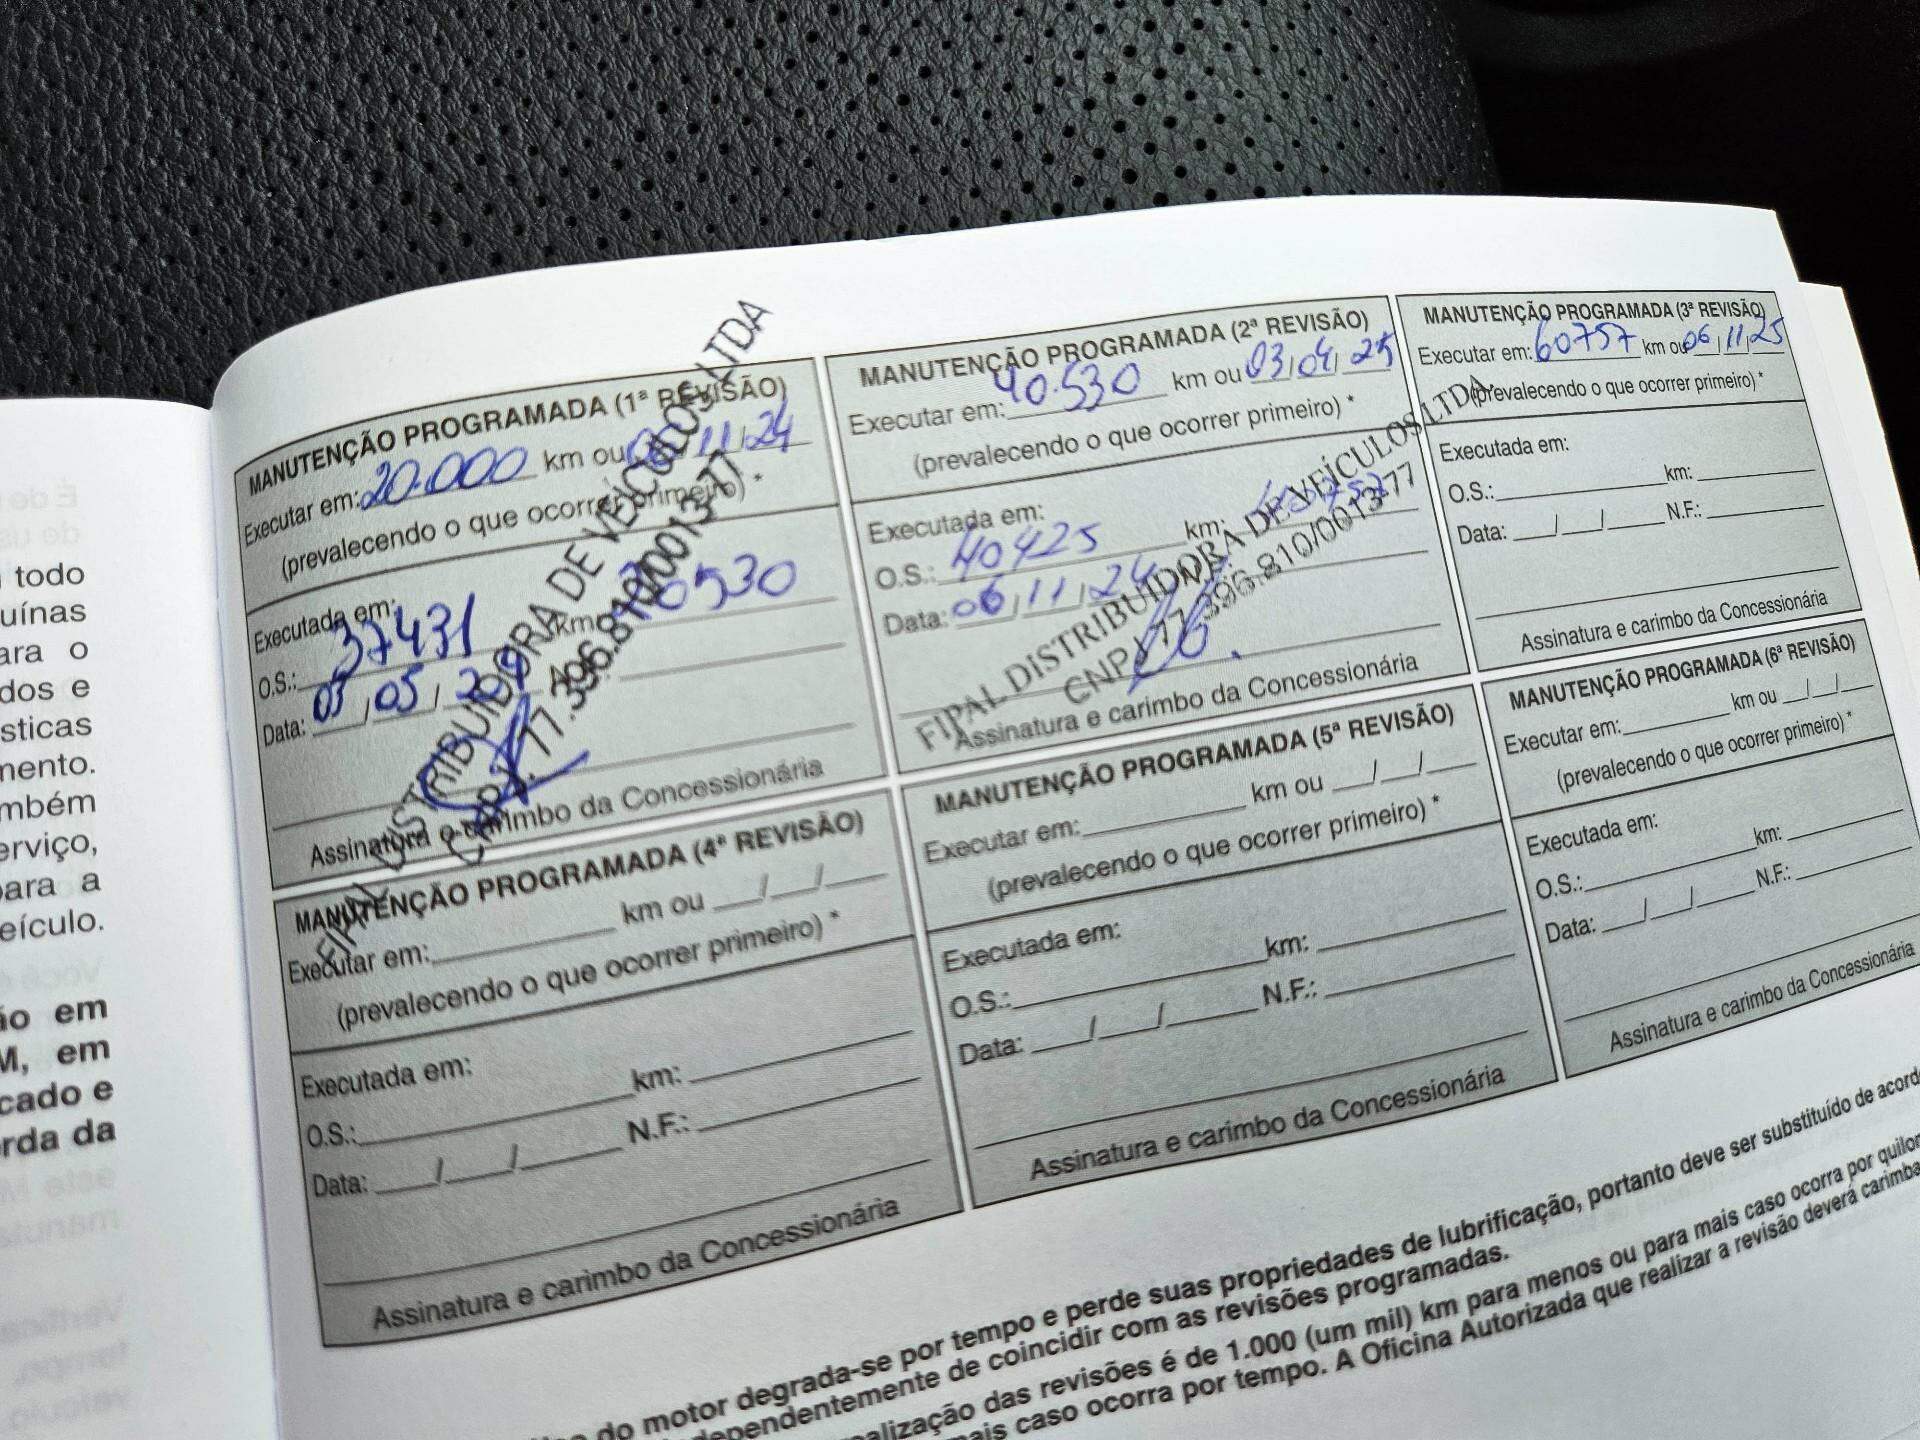 todo
uínas
ara o
dos e
sticas
mento.
mbém
erviço,
para a
eículo.
ão em
M, em
cado e
rda da
MANUTENÇÃO PROGRAMADA (1ª REVISÃO)
Executar em: 20.000 km ou /11/24
(prevalecendo o que ocorrer primeiro) *
Executada em:
O.S.: 37431 km: 20530
Data: 03/05/24
Assinatura e carimbo da Concessionária
FIPAL DISTRIBUIDORA DE VEÍCULOS LTDA
CNPJ. 77.396.810/0013-77
MANUTENÇÃO PROGRAMADA (2ª REVISÃO)
Executar em: 40.530 km ou 03/04/25
(prevalecendo o que ocorrer primeiro) *
Executada em:
O.S.: 40425 km:
Data: 06/11/24
Assinatura e carimbo da Concessionária
FIPAL DISTRIBUIDORA DE VEÍCULOS LTDA.
CNPJ 77.396.810/0013-77
MANUTENÇÃO PROGRAMADA (3ª REVISÃO)
Executar em: 60757 km ou 06/11/25
(prevalecendo o que ocorrer primeiro) *
Executada em:
O.S.: km:
Data: / / N.F.:
Assinatura e carimbo da Concessionária
MANUTENÇÃO PROGRAMADA (4ª REVISÃO)
Executar em: km ou / /
(prevalecendo o que ocorrer primeiro) *
Executada em:
O.S.: km:
Data: / / N.F.:
Assinatura e carimbo da Concessionária
MANUTENÇÃO PROGRAMADA (5ª REVISÃO)
Executar em: km ou / /
(prevalecendo o que ocorrer primeiro) *
Executada em:
O.S.: km:
Data: / / N.F.:
Assinatura e carimbo da Concessionária
MANUTENÇÃO PROGRAMADA (6ª REVISÃO)
Executar em: km ou / /
(prevalecendo o que ocorrer primeiro) *
Executada em:
O.S.: km:
Data: / / N.F.:
Assinatura e carimbo da Concessionária
do motor degrada-se por tempo e perde suas propriedades de lubrificação, portanto deve ser substituído de acord
dependentemente de coincidir com as revisões programadas.
alização das revisões é de 1.000 (um mil) km para menos ou para mais caso ocorra por quilom
mais caso ocorra por tempo. A Oficina Autorizada que realizar a revisão deverá carimba